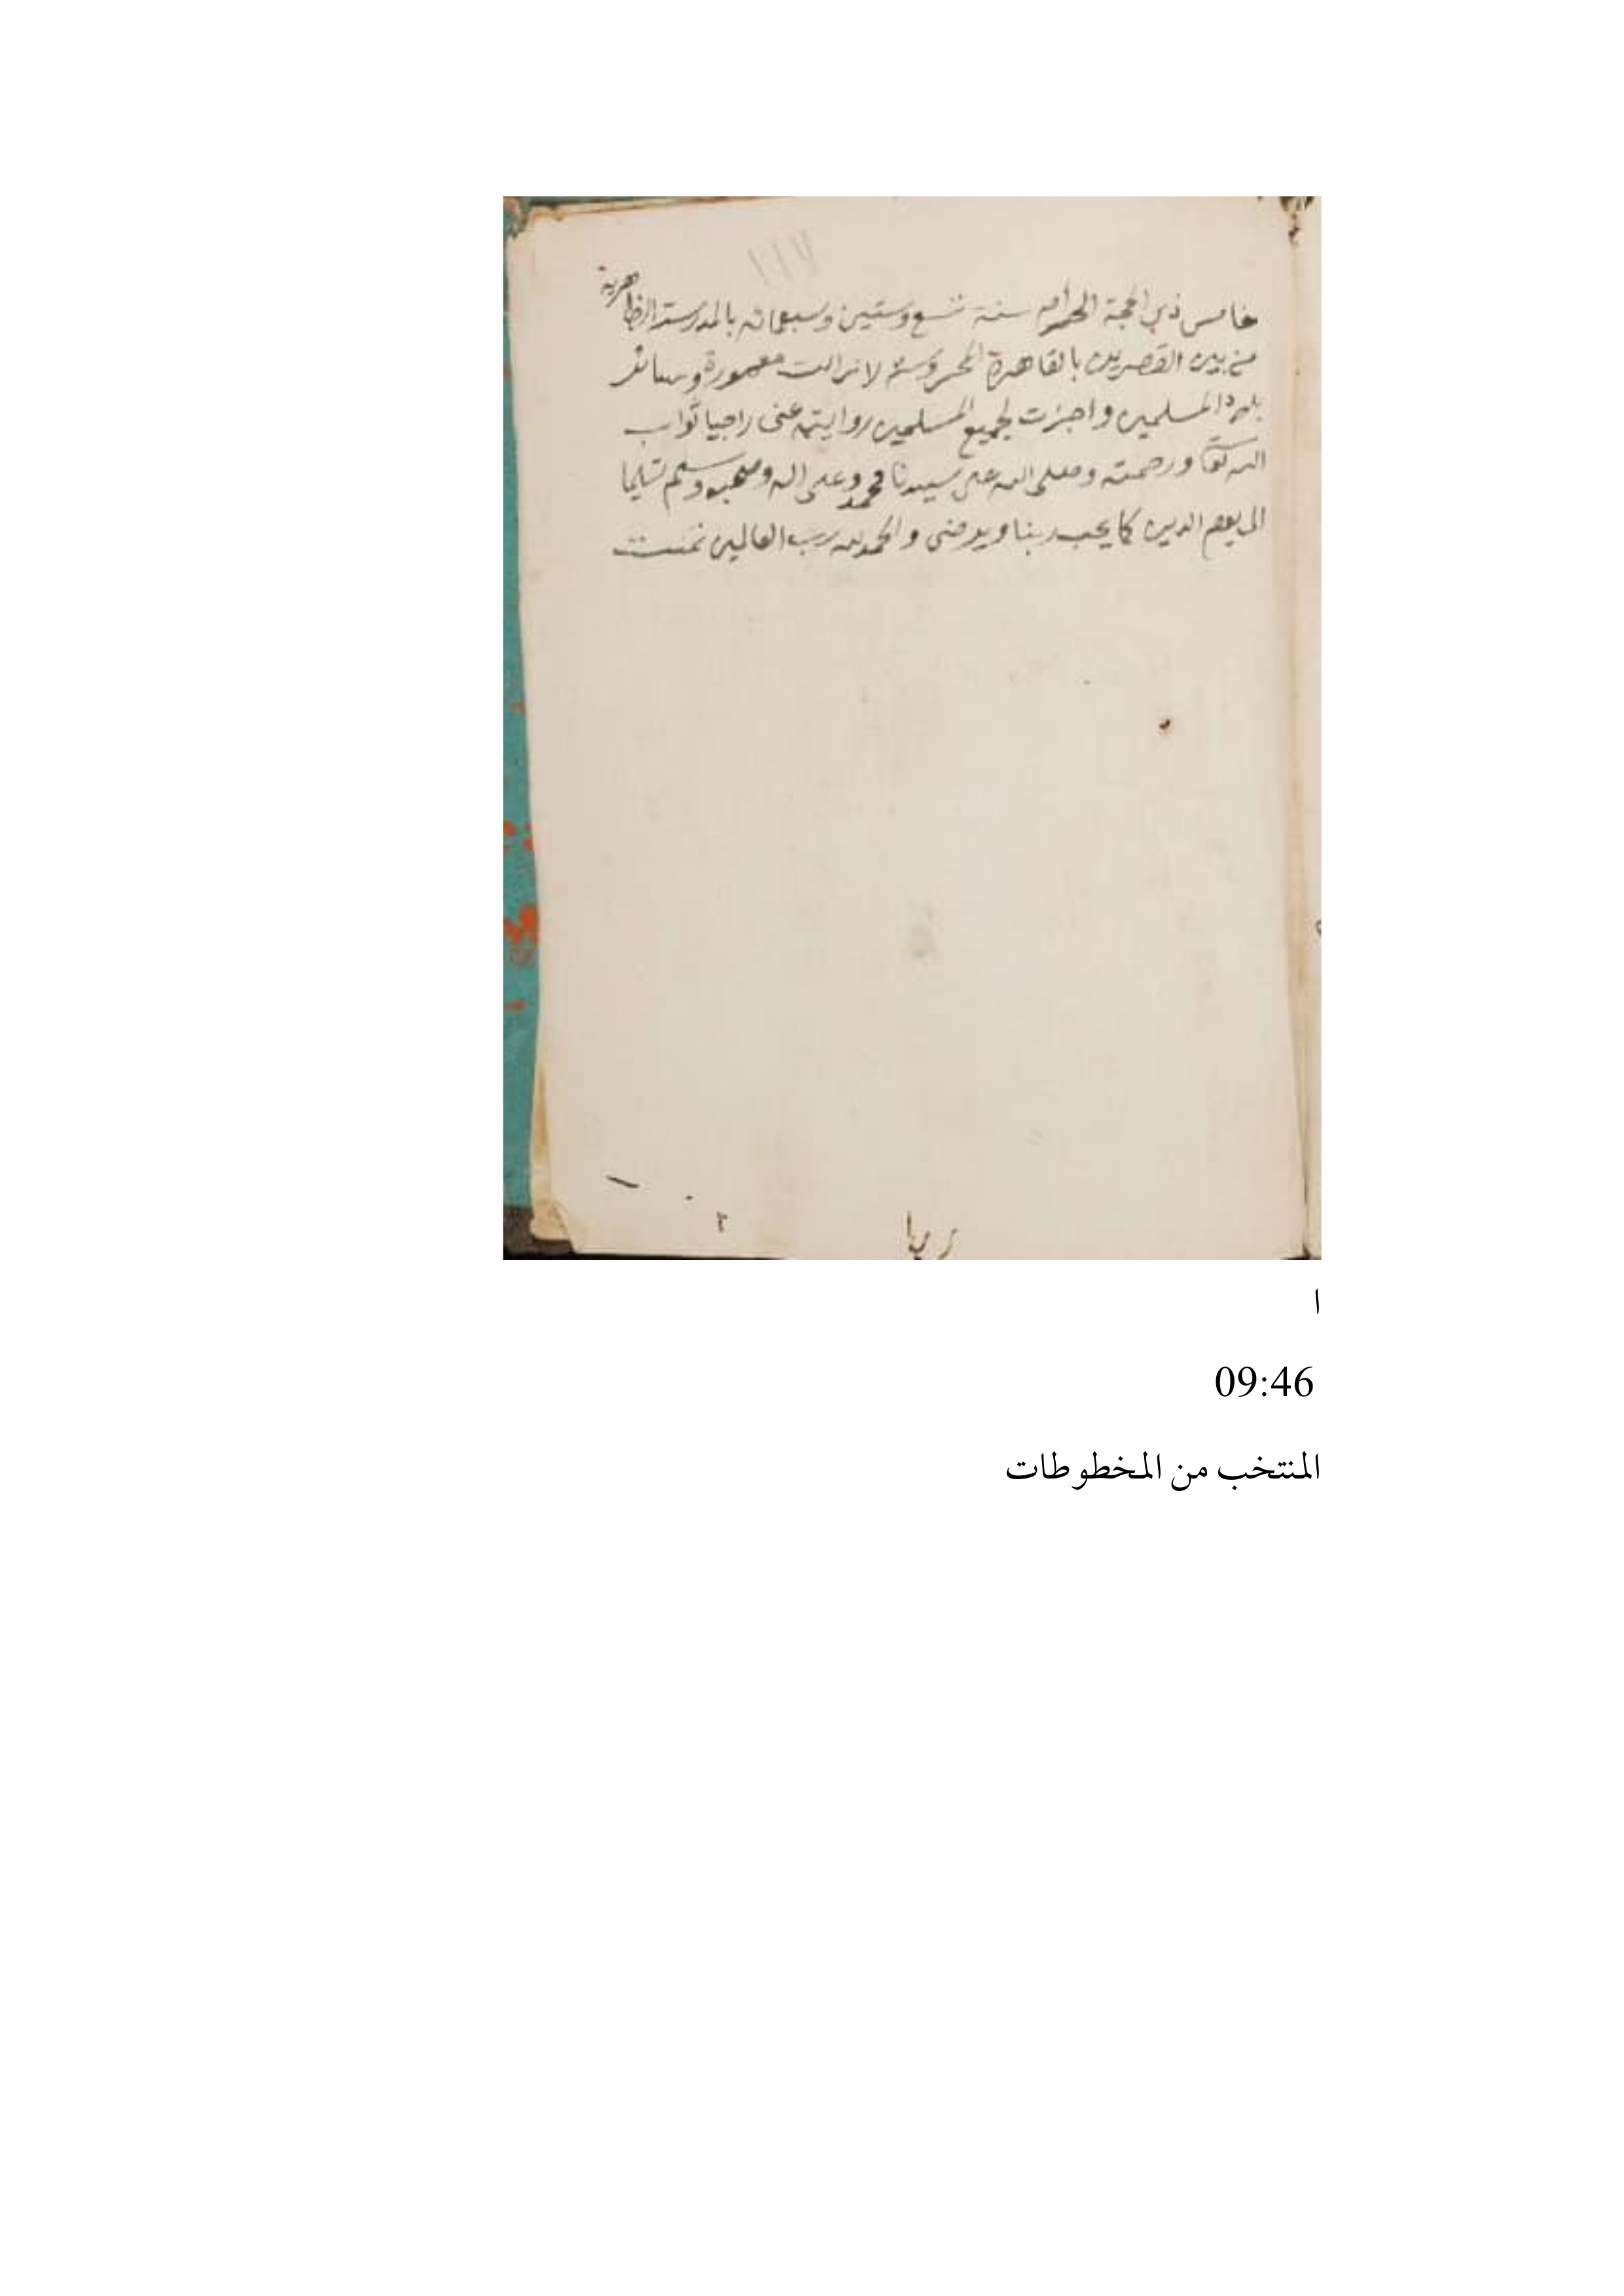 ١١٧
خامس ذي الحجة الحرام سنة تسع وستين وسبعمائه بالمدرسة الظاهرية
من بين القصرين بالقاهرة المحروسة لازالت معمورة وسائر
بلاد المسلمين واجزت لجميع المسلمين روايته عنى راجيا ثواب
الله تعا ورحمته وصلى الله على سيدنا محمد وعلى اله وصحبه وسلم تسليما
الى يوم الدين كما يحب ربنا ويرضى والحمد لله رب العالمين تمت
ا
09:46
المنتخب من المخطوطات